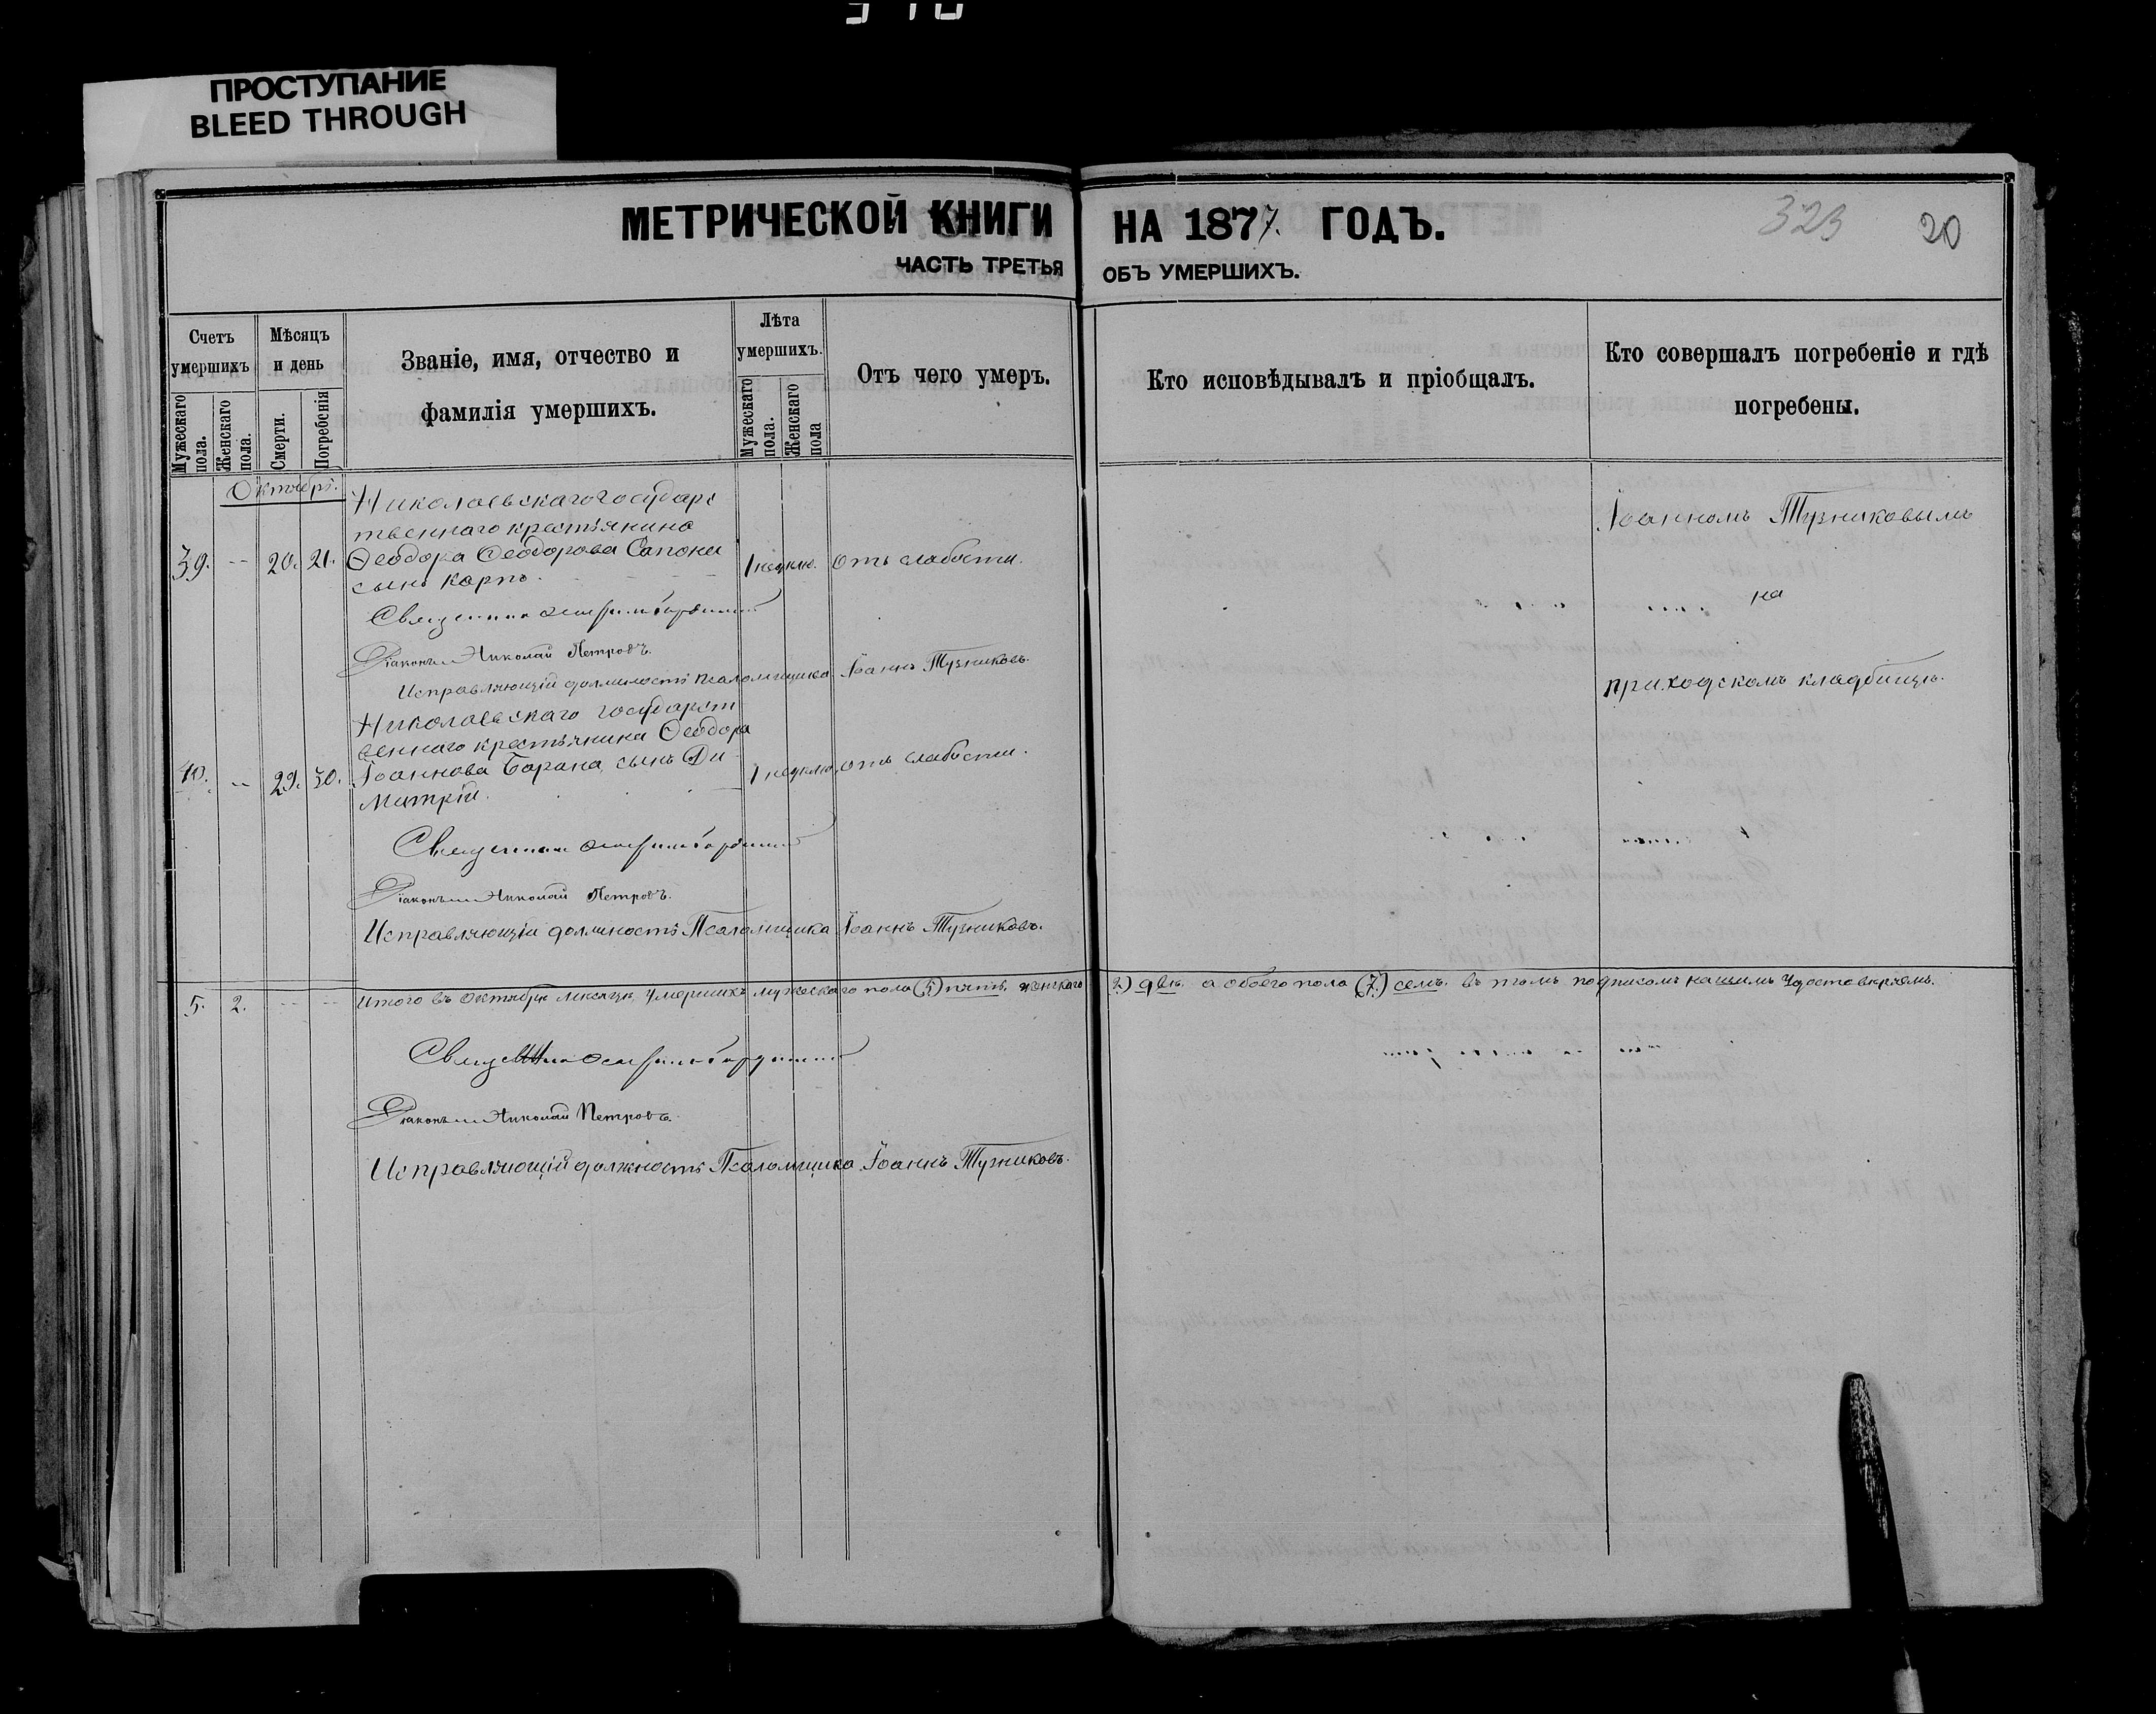 ПРОСТУПАНИЕ
BLEED THROUGH
МЕТРИЧЕСКОЙ КНИГИ НА 1877. ГОДЪ.
323 20
ЧАСТЬ ТРЕТЬЯ ОБЪ УМЕРШИХЪ.
Счетъ умершихъ
Мужескаго пола.
Женскаго пола.
Мѣсяцъ и день
Смерти.
Погребенія
Званіе, имя, отчество и
фамилія умершихъ.
Лѣта умершихъ.
Мужескаго пола.
Женскаго пола
Отъ чего умеръ.
Кто исповѣдывалъ и пріобщалъ.
Кто совершалъ погребеніе и гдѣ
погребены.
Октябрь.
Николаевскаго государс
твеннаго крестьянина
39. -- 20. 21. Ѳеодора Ѳеодорова Сапона 1 недѣлю. отъ слабости.
сынъ Карпъ.
Священникъ
Діаконъ Николай Петровъ.
Исправляющій должность псаломщика Іоаннъ Тузниковъ.
Іоанномъ Тузниковымъ
на
приходскомъ кладбищѣ.
Николаевскаго государст
веннаго крестьянина Ѳеодора
40. -- 29. 30. Іоаннова Барана, сынъ Ди 1 недѣлю. отъ слабости.
митрій.
Священникъ
Діаконъ Николай Петровъ.
Исправляющій должность Псаломщика Іоаннъ Тузниковъ.
5. 2. -- -- Итого въ Октябрѣ мѣсяцѣ умершихъ мужескаго пола (5) пять. женскаго 2) двѣ. а обоего пола (7.) семь. въ томъ подписомъ нашимъ удостовѣряемъ.
Священникъ
Діаконъ Николай Петровъ.
Исправляющій должность Псаломщика Іоаннъ Тузниковъ.